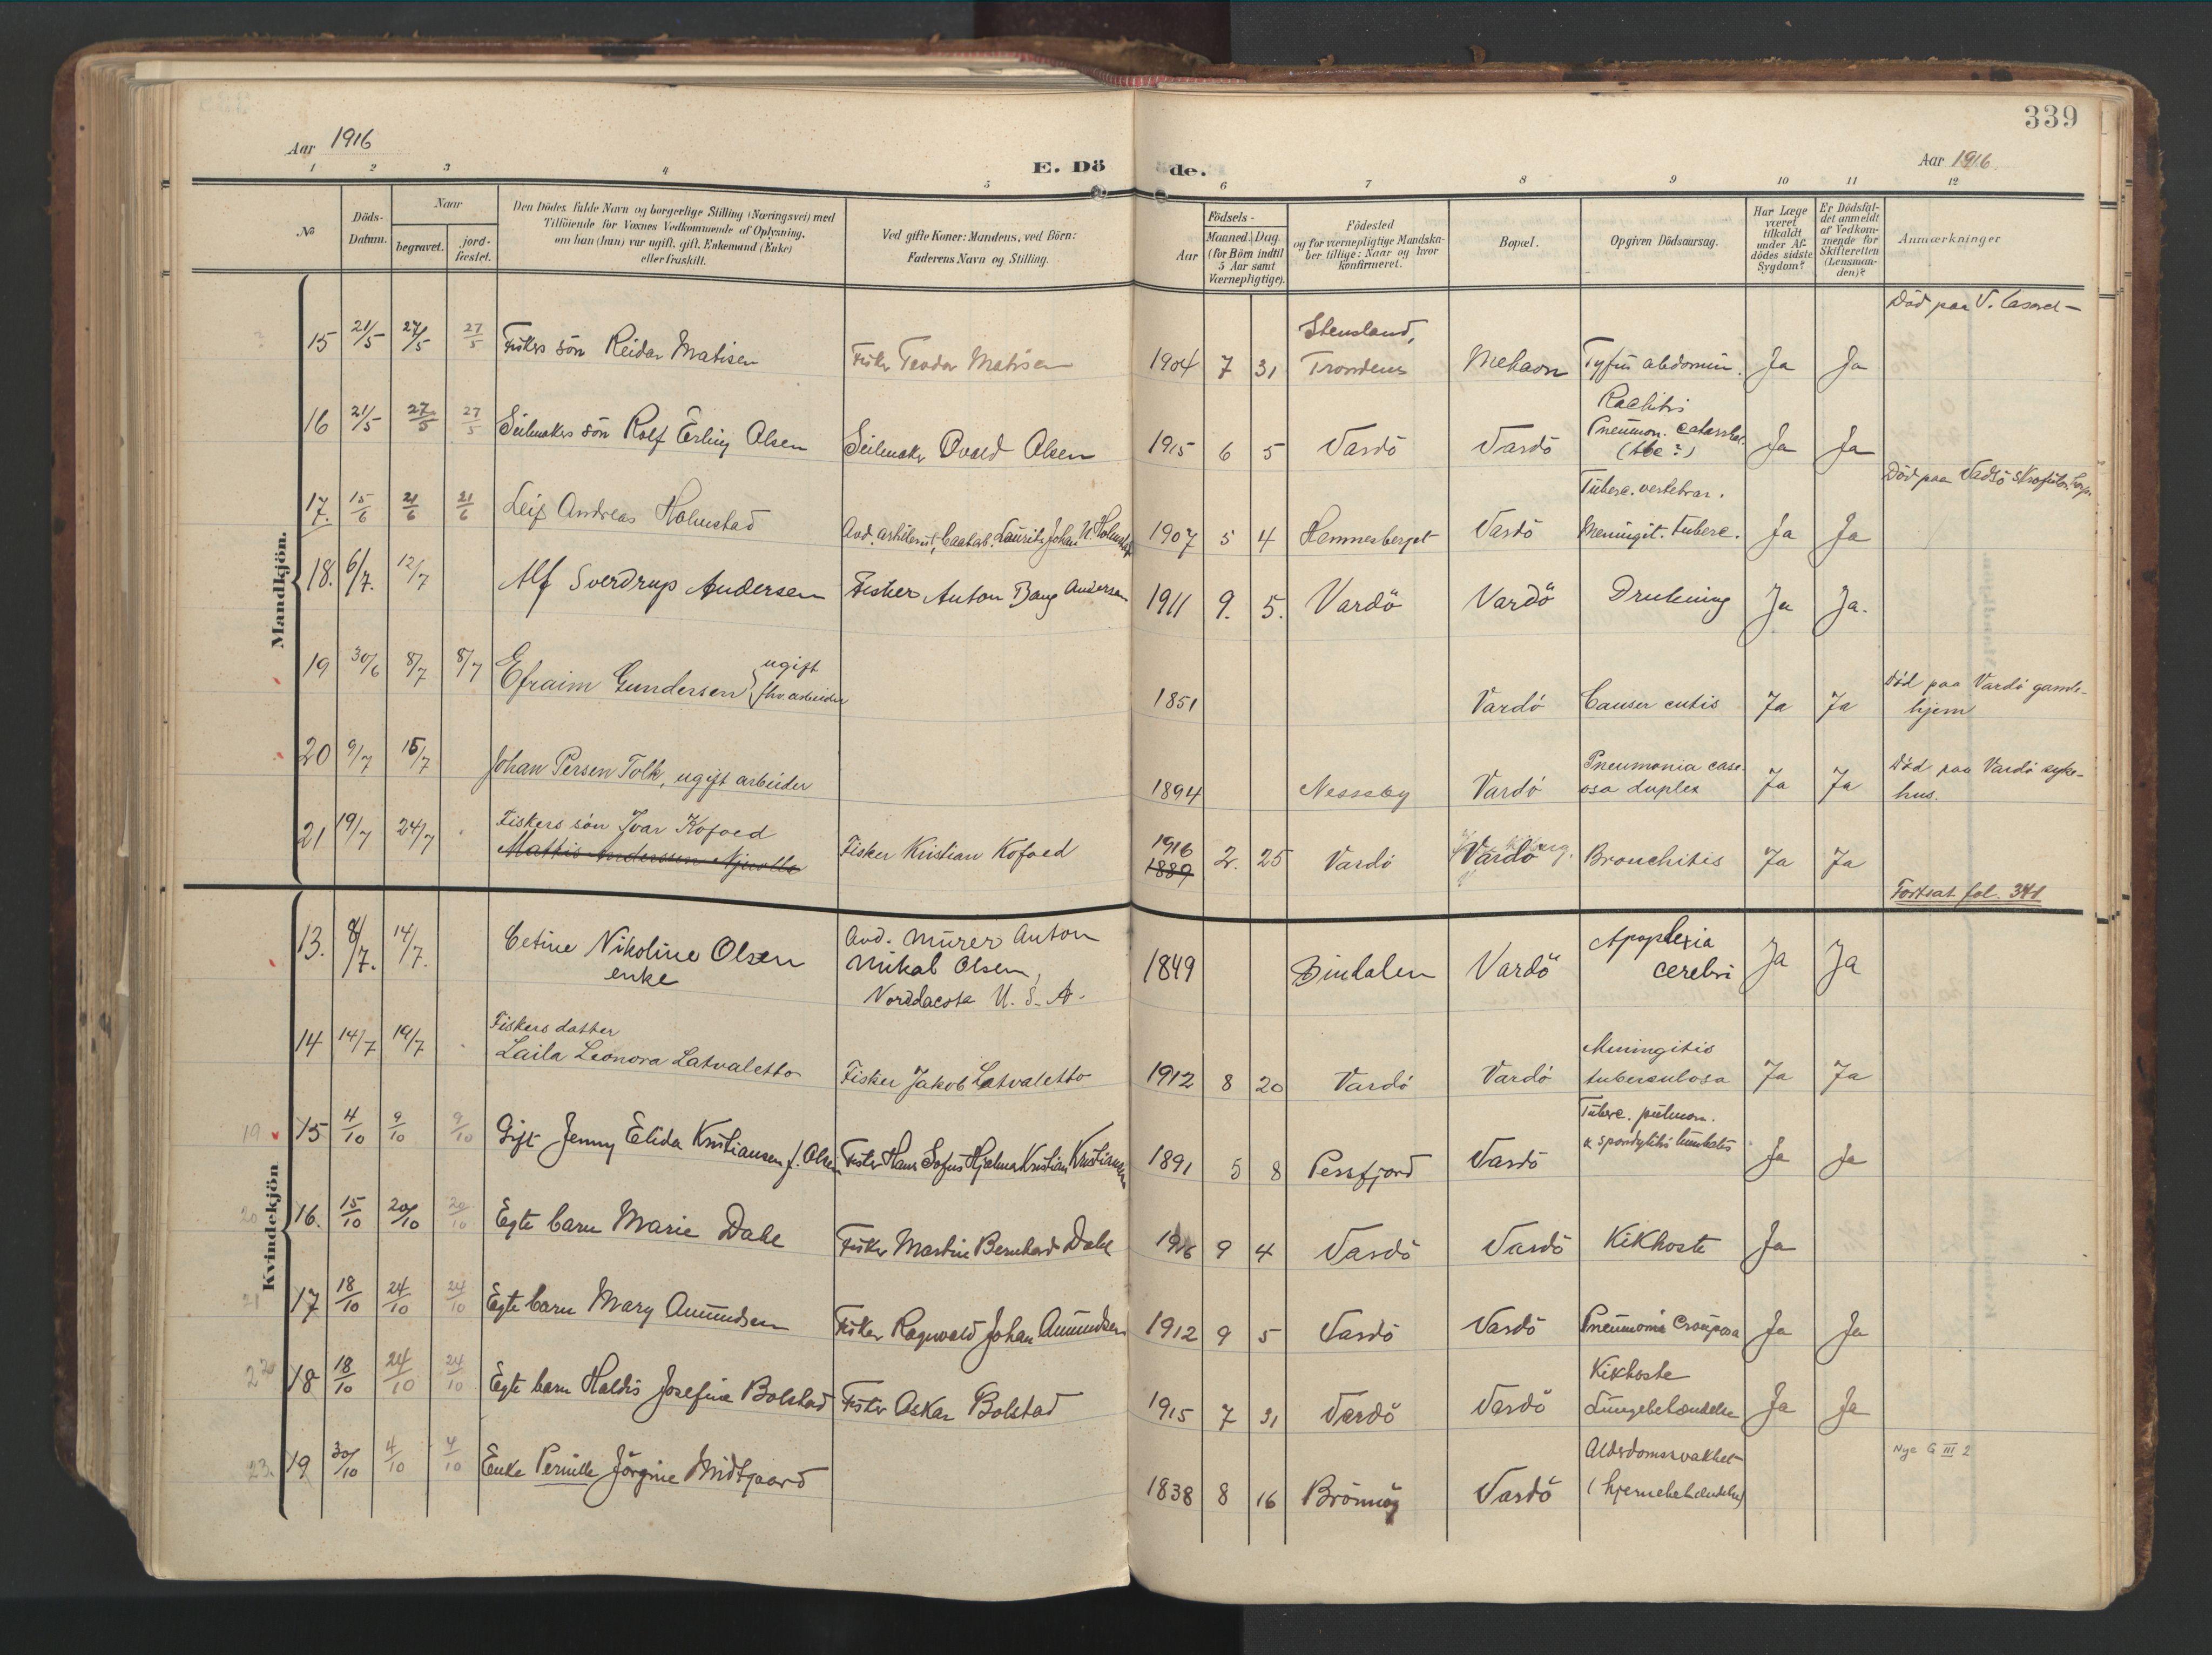 339
Aar 1916
E. Döde.
Aar 1916.
1 2 3 4 5 6 7 8 9 10 11 12
№
Döds-Datum.
Naar
begravet.
jord-fæstet.
Den Dödes fulde Navn og borgerlige Stilling (Næringsvei) med
Tilföiende for Voxnes Vedkommende af Oplysning,
om han (hun) var ugift, gift, Enkemand (Enke)
eller fraskilt.
Ved gifte Koner: Mandens, ved Börn:
Faderens Navn og Stilling.
Födsels-
Aar
Maaned. Dag.
(for Börn indtil
5 Aar samt
Værnepligtige).
Födested
og for værnepligtige Mandska-
ber tillige: Naar og hvor
konfirmeret.
Bopæl.
Opgiven Dödsaarsag.
Har Læge
været
tilkaldt
under Af-
dödes sidste
Sygdom?
Er Dödsfal-
det anmeldt
af Vedkom-
mende for
Skifteretten
(Lensman-
den)?
Anmærkninger
Mandkjön.
15 21/5 27/5 27/5 Fiskers sön Reidar Matisen Fisker Teodor Matisen 1904 7 31 Stensland, Trondenes Mehavn Tyfus abdomin. Ja Ja Död paa V. lasaret
16 21/5 27/5 27/5 Seilmakers sön Rolf Erling Olsen Seilmaker Ovald Olsen 1915 6 5 Vardö Vardö Rachitis Pneumon. catarrhal. (tbc?) Ja Ja
17. 15/6 21/6 21/6 Leif Andreas Holmstad Avd. artilerist, Lauritz Johan N. Holmstad 1907 5 4 Hemnesberget Vardö Tuberc. vertebrar. Meningit. tuberc. Ja Ja Död paa Vadsö skrofulosehosp.
18. 6/7. 12/7 Alf Sverdrup Andersen Fisker Anton Bang Andersen 1911 9. 5. Vardö Vardö Drukning Ja Ja.
19 30/6 8/7 8/7 Efraim Gundersen ugift fhv. arbeider 1851 Vardö Cancer cutis Ja Ja Död paa Vardö gamle-
hjem
20 9/7 15/7 Johan Persen Tolk, ugift arbeider 1894 Nesseby Vardö Pneumonia case-
osa duplex Ja Ja Död paa Vardö syke-
hus.
21 19/7 24/7 Fiskers sön Ivar Kofoed
Mattis Anderssen Njuolla Fisker Kristian Kofoed 1916
1889 2. 25 Vardö Vardö Bronchitis Ja Ja
Fortsat fol. 341
Kvindekjön
13. 8/7. 14/7. Cetine Nikoline Olsen
enke Avd. murer Anton
Mikal Olsen,
Norddacota U. S. A. 1849 Bindalen Vardö Apoplexia
cerebri Ja Ja
14 14/7 19/7 Fiskers datter
Laila Leonora Latvaletto Fisker Jakob Latvaletto 1912 8 20 Vardö Vardö Meningitis
tuberculosa Ja Ja
19 15 4/10 9/10 9/10 Gift Jenny Elida Kristiansen f. Olsen Fisker Hans Sofus Hjalmar Kristian Kristiansen 1891 5 8 Persfjord Vardö Tuberc. pulmon.
& spondylitis lumbalis Ja Ja
20 16. 15/10 20/10 20/10 Egte barn Marie Dahl Fisker Martin Bernhard Dahl 1916 9 4 Vardö Vardö Kikhoste Ja
21 17 18/10 24/10 24/10 Egte barn Mary Amundsen Fisker Ragnvald Johan Amundsen 1912 9 5 Vardö Vardö Pneumoni crouposa Ja Ja
22 18 18/10 24/10 24/10 Egte barn Haldis Josefine Bolstad Fisker Oskar Bolstad 1915 7 31 Vardö Vardö Kikhoste
Lungebetændelse Ja Ja
23. 19 30/10 4/10 4/10 Enke Pernille Jörgine Midtgaard 1838 8 16 Brönnöy Vardö Alderdomssvakhet
(hjernebetændelse) Nye G III 2